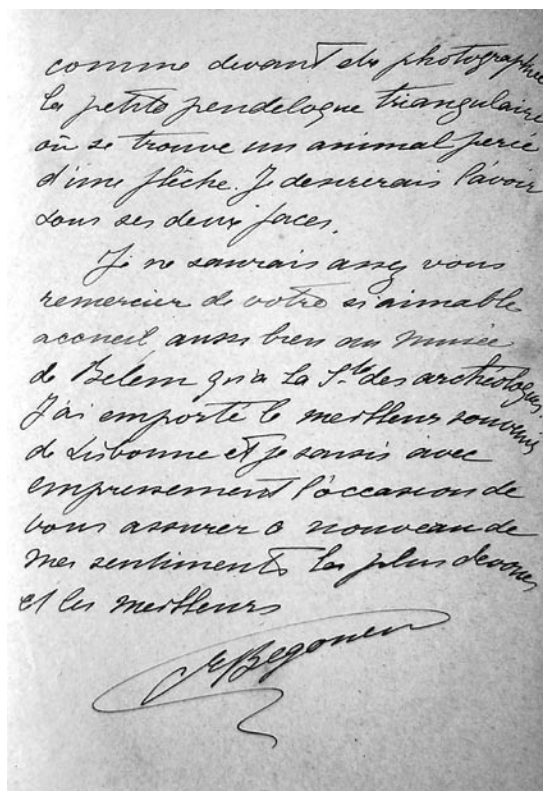 comme devant etre photographiée
la petite pendeloque triangulaire
où se trouve un animal percé
d'une flèche. Je desirerais l'avoir
sous ses deux faces.
Je ne saurais assez vous
remercier de votre si aimable
accueil aussi bien au Musée
de Belem qu'à la Sté des archéologues.
J'ai emporté le meilleur souvenir
de Lisbonne et je saisis avec
empressement l'occasion de
vous assurer à nouveau de
mes sentiments les plus devoués
et les meilleurs
Begouen